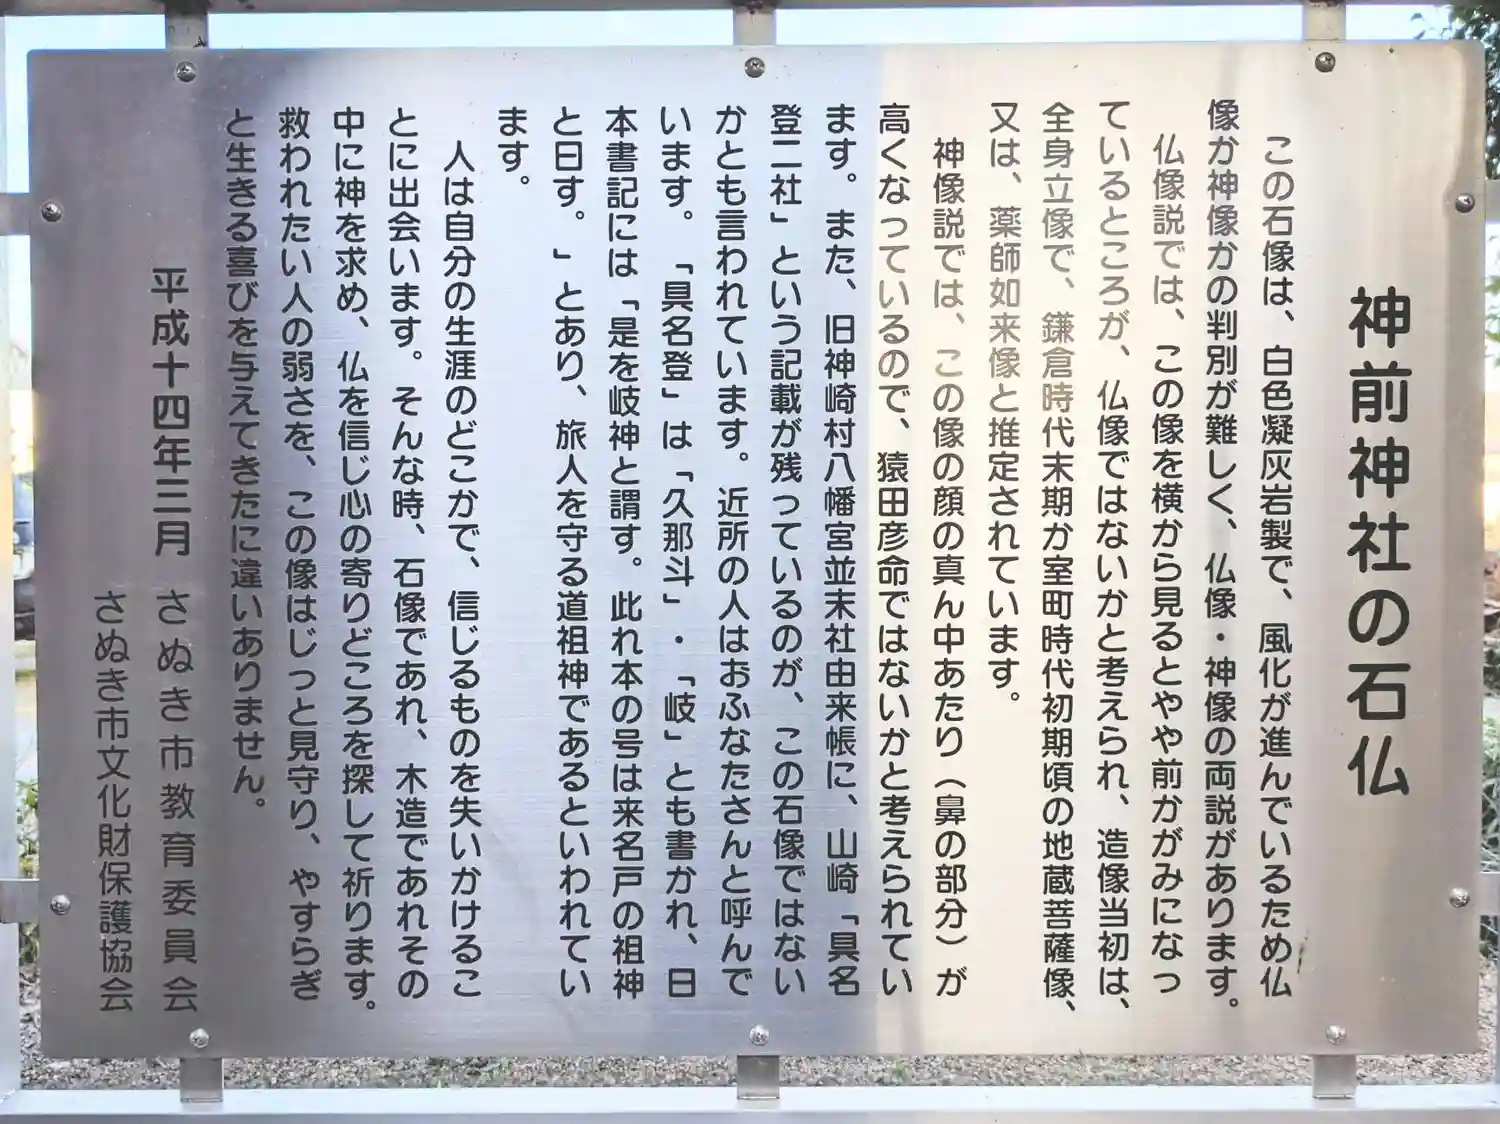 神前神社の石仏
この石像は、白色凝灰岩製で、風化が進んでいるため仏
像か神像かの判別が難しく、仏像・神像の両説があります。
仏像説では、この像を横から見るとやや前かがみになっ
ているところが、仏像ではないかと考えられ、造像当初は、
全身立像で、鎌倉時代末期か室町時代初期頃の地蔵菩薩像、
又は、薬師如来像と推定されています。
神像説では、この像の顔の真ん中あたり（鼻の部分）が
高くなっているので、猿田彦命ではないかと考えられてい
ます。また、旧神崎村八幡宮並末社由来帳に、山崎「具名
登二社」という記載が残っているのが、この石像ではない
かとも言われています。近所の人はおふなたさんと呼んで
います。「具名登」は「久那斗」・「岐」とも書かれ、日
本書記には「是を岐神と謂す。此れ本の号は来名戸の祖神
と曰す。」とあり、旅人を守る道祖神であるといわれてい
ます。
人は自分の生涯のどこかで、信じるものを失いかけるこ
とに出会います。そんな時、石像であれ、木造であれその
中に神を求め、仏を信じ心の寄りどころを探して祈ります。
救われたい人の弱さを、この像はじっと見守り、やすらぎ
と生きる喜びを与えてきたに違いありません。
平成十四年三月 さぬき市教育委員会
さぬき市文化財保護協会